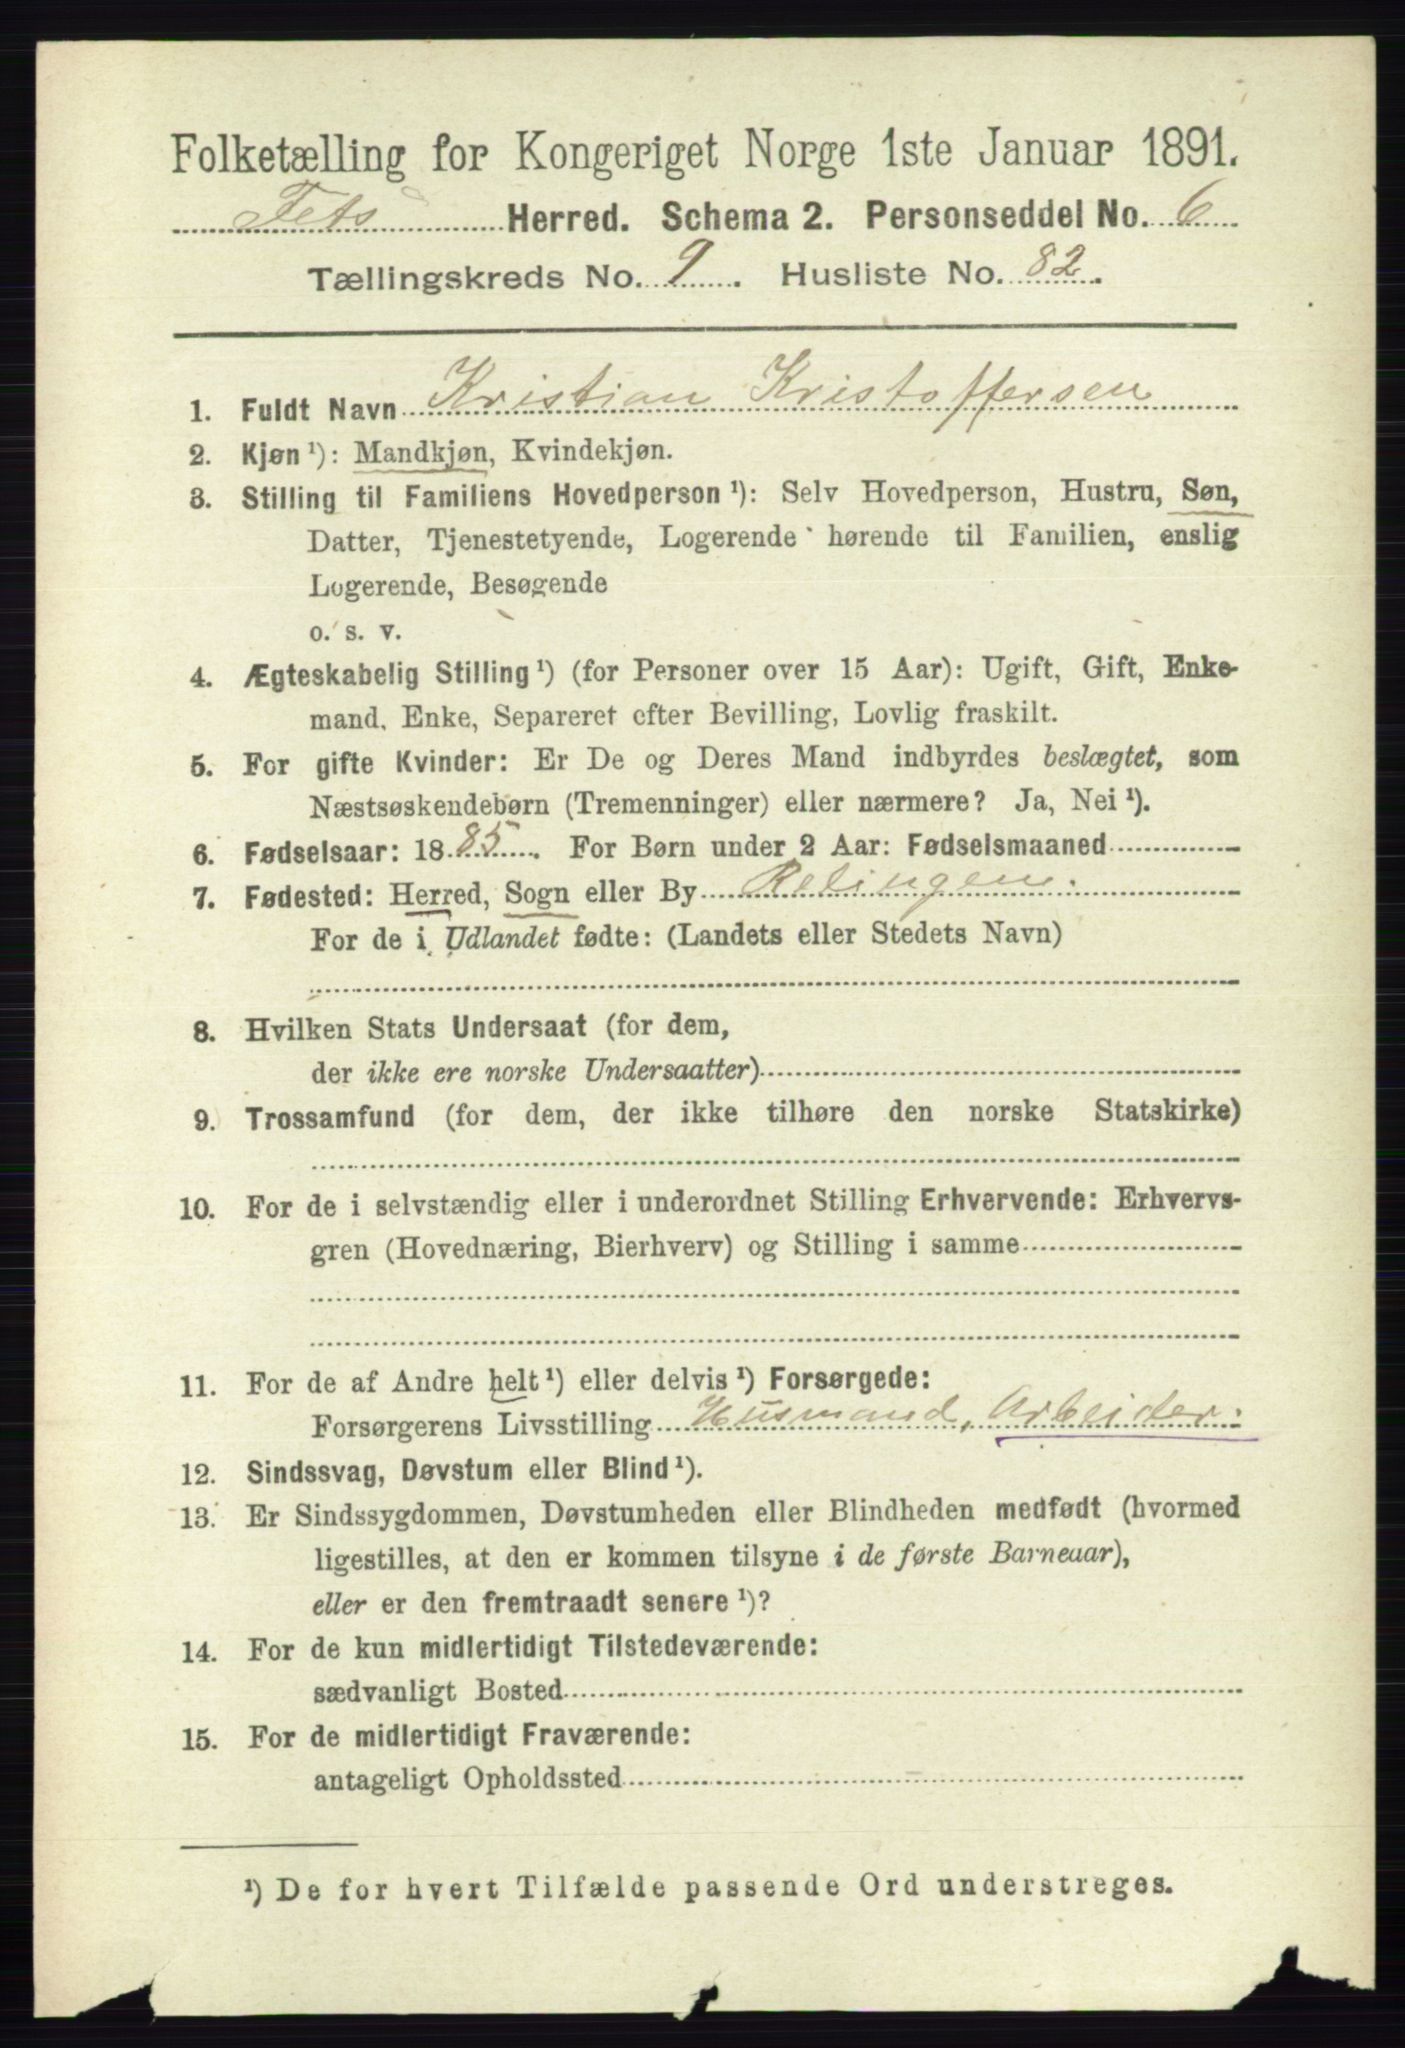 Folketælling for Kongeriget Norge 1ste Januar 1891.
Fets Herred. Schema 2. Personseddel No. 6
Tællingskreds No. 9. Husliste No. 82.
1. Fuldt Navn Kristian Kristoffersen
2. Kjøn¹): Mandkjøn, Kvindekjøn.
3. Stilling til Familiens Hovedperson¹): Selv Hovedperson, Hustru, Søn,
Datter, Tjenestetyende, Logerende hørende til Familien, enslig
Logerende, Besøgende
o. s. v.
4. Ægteskabelig Stilling¹) (for Personer over 15 Aar): Ugift, Gift, Enke-
mand, Enke, Separeret efter Bevilling, Lovlig fraskilt.
5. For gifte Kvinder: Er De og Deres Mand indbyrdes beslægtet, som
Næstsøskendebørn (Tremenninger) eller nærmere? Ja, Nei¹).
6. Fødselsaar: 1885. For Børn under 2 Aar: Fødselsmaaned
7. Fødested: Herred, Sogn eller By Relingen.
For de i Udlandet fødte: (Landets eller Stedets Navn)
8. Hvilken Stats Undersaat (for dem,
der ikke ere norske Undersaatter)
9. Trossamfund (for dem, der ikke tilhøre den norske Statskirke)
10. For de i selvstændig eller i underordnet Stilling Erhvervende: Erhvervs-
gren (Hovednæring, Bierhverv) og Stilling i samme
11. For de af Andre helt¹) eller delvis¹) Forsørgede:
Forsørgerens Livsstilling Husmand, Arbeider.
12. Sindssvag, Døvstum eller Blind¹).
13. Er Sindssygdommen, Døvstumheden eller Blindheden medfødt (hvormed
ligestilles, at den er kommen tilsyne i de første Barneaar),
eller er den fremtraadt senere¹)?
14. For de kun midlertidigt Tilstedeværende:
sædvanligt Bosted
15. For de midlertidigt Fraværende:
antageligt Opholdssted
¹) De for hvert Tilfælde passende Ord understreges.